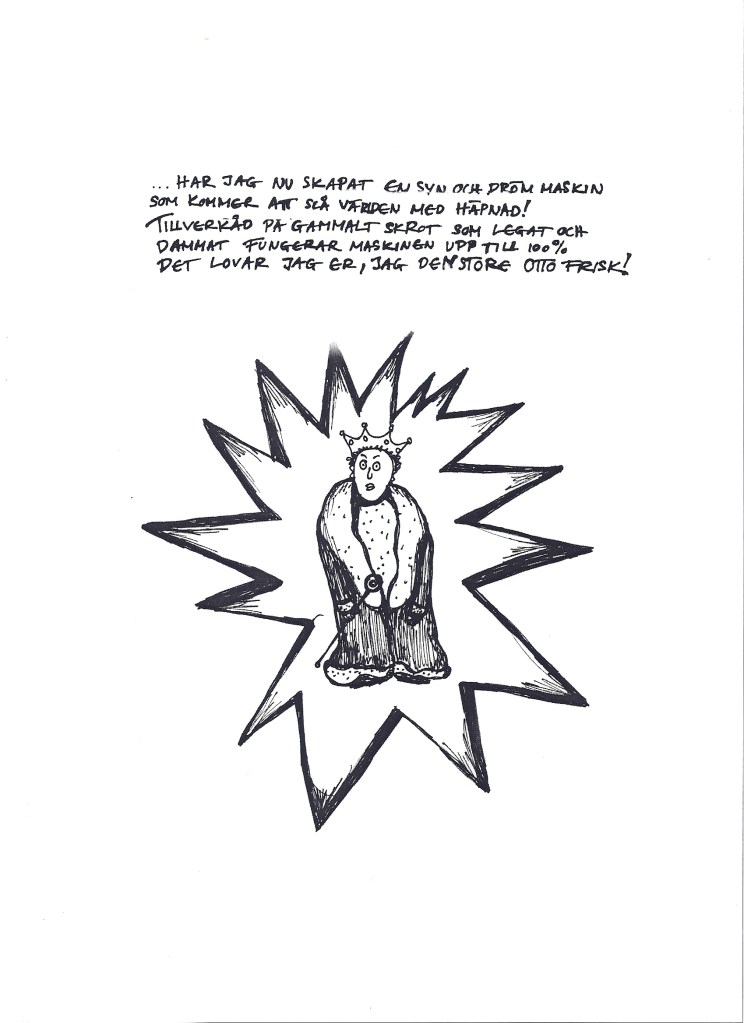 ... HAR JAG NU SKAPAT EN SYN OCH DRÖM MASKIN
SOM KOMMER ATT SLÅ VÄRLDEN MED HÄPNAD!
TILLVERKAD PÅ GAMMALT SKROT SOM LEGAT OCH
DAMMAT FUNGERAR MASKINEN UPP TILL 100%
DET LOVAR JAG ER, JAG DEN STORE OTTO FRISK!